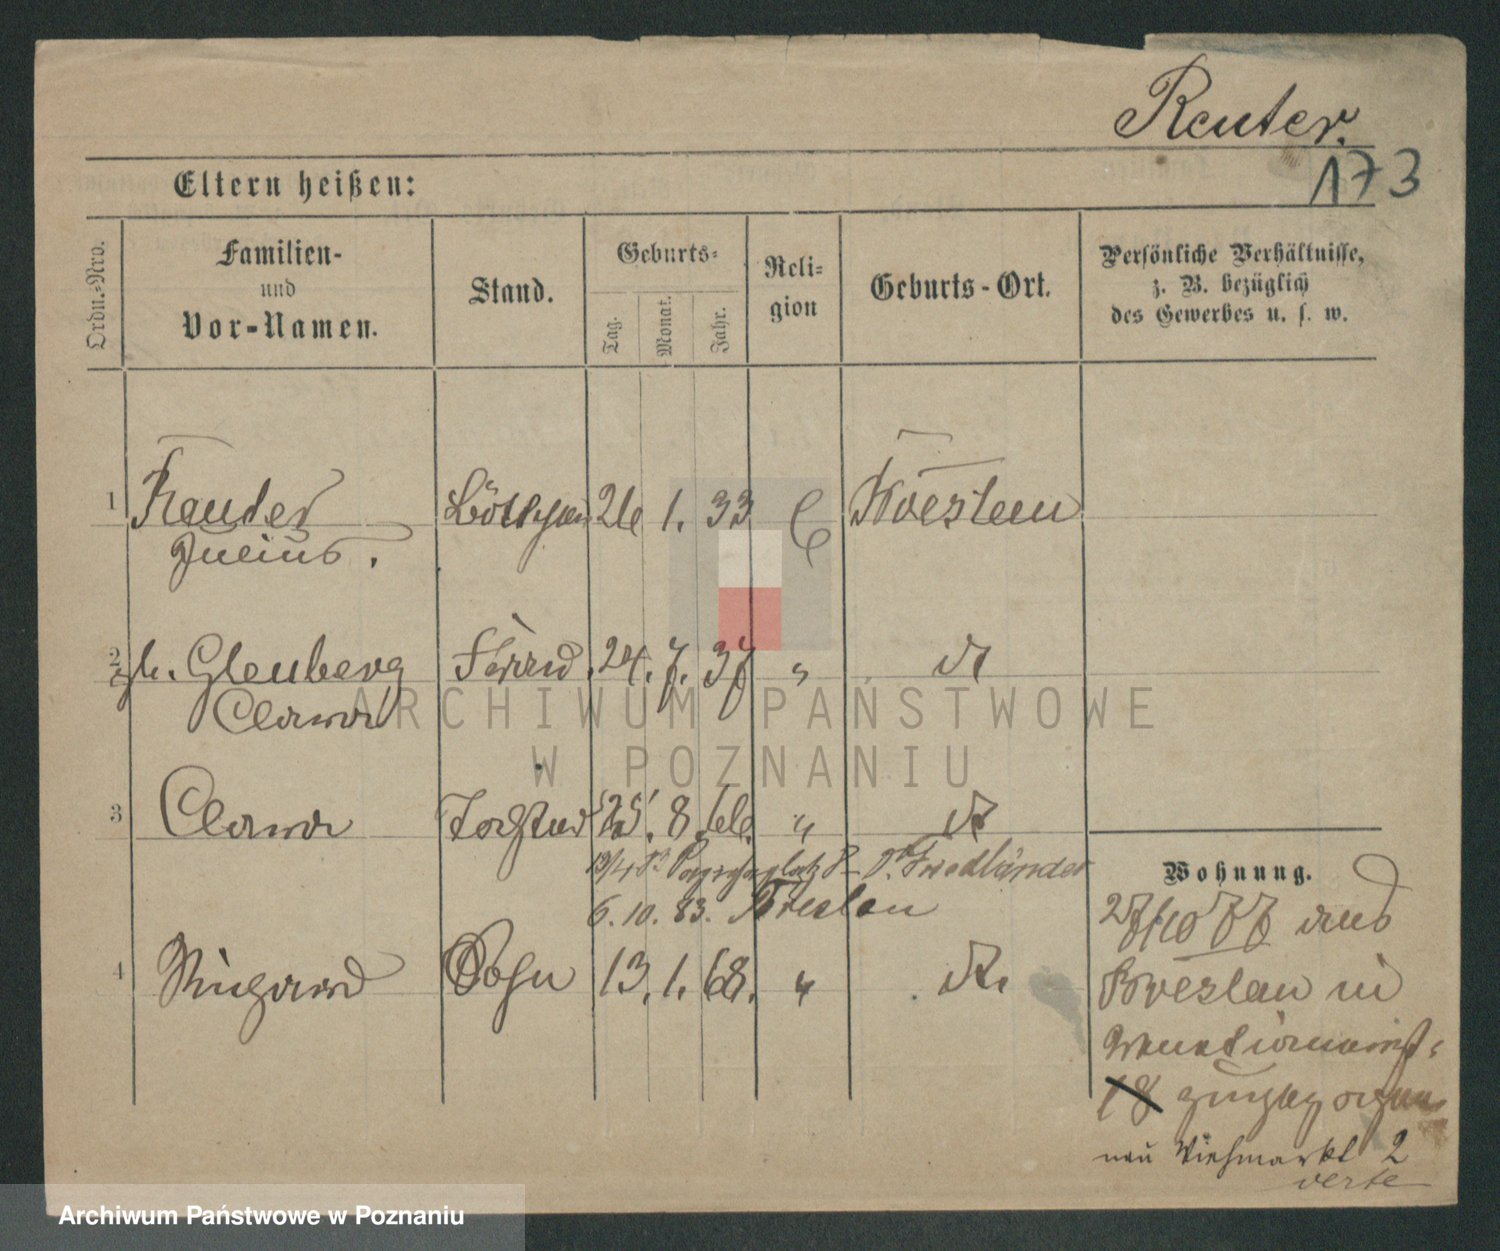 Reuter.
173
Eltern heißen:
Ordn.-Nro.
Familien-
und
Vor-Namen.
Stand.
Geburts-
Tag.
Monat.
Jahr.
Reli-
gion
Geburts-Ort.
Persönliche Verhältnisse,
z. B. bezüglich
des Gewerbes u. s. w.
1 Reuter 26 1. 33 Breslau
Julius.
2 Glenberg Frau 24. 7. 37 "
Clara
3 Clara Tochter 25. 8. 66 "
Friedländer
6. 10. 83. Breslau
4 Sohn 13. 1. 68. "
Wohnung.
27/10 77 aus
Breslau in
18 zugezogen
neu Viehmarkt 2
verte
ARCHIWUM PAŃSTWOWE
W POZNANIU
Archiwum Państwowe w Poznaniu